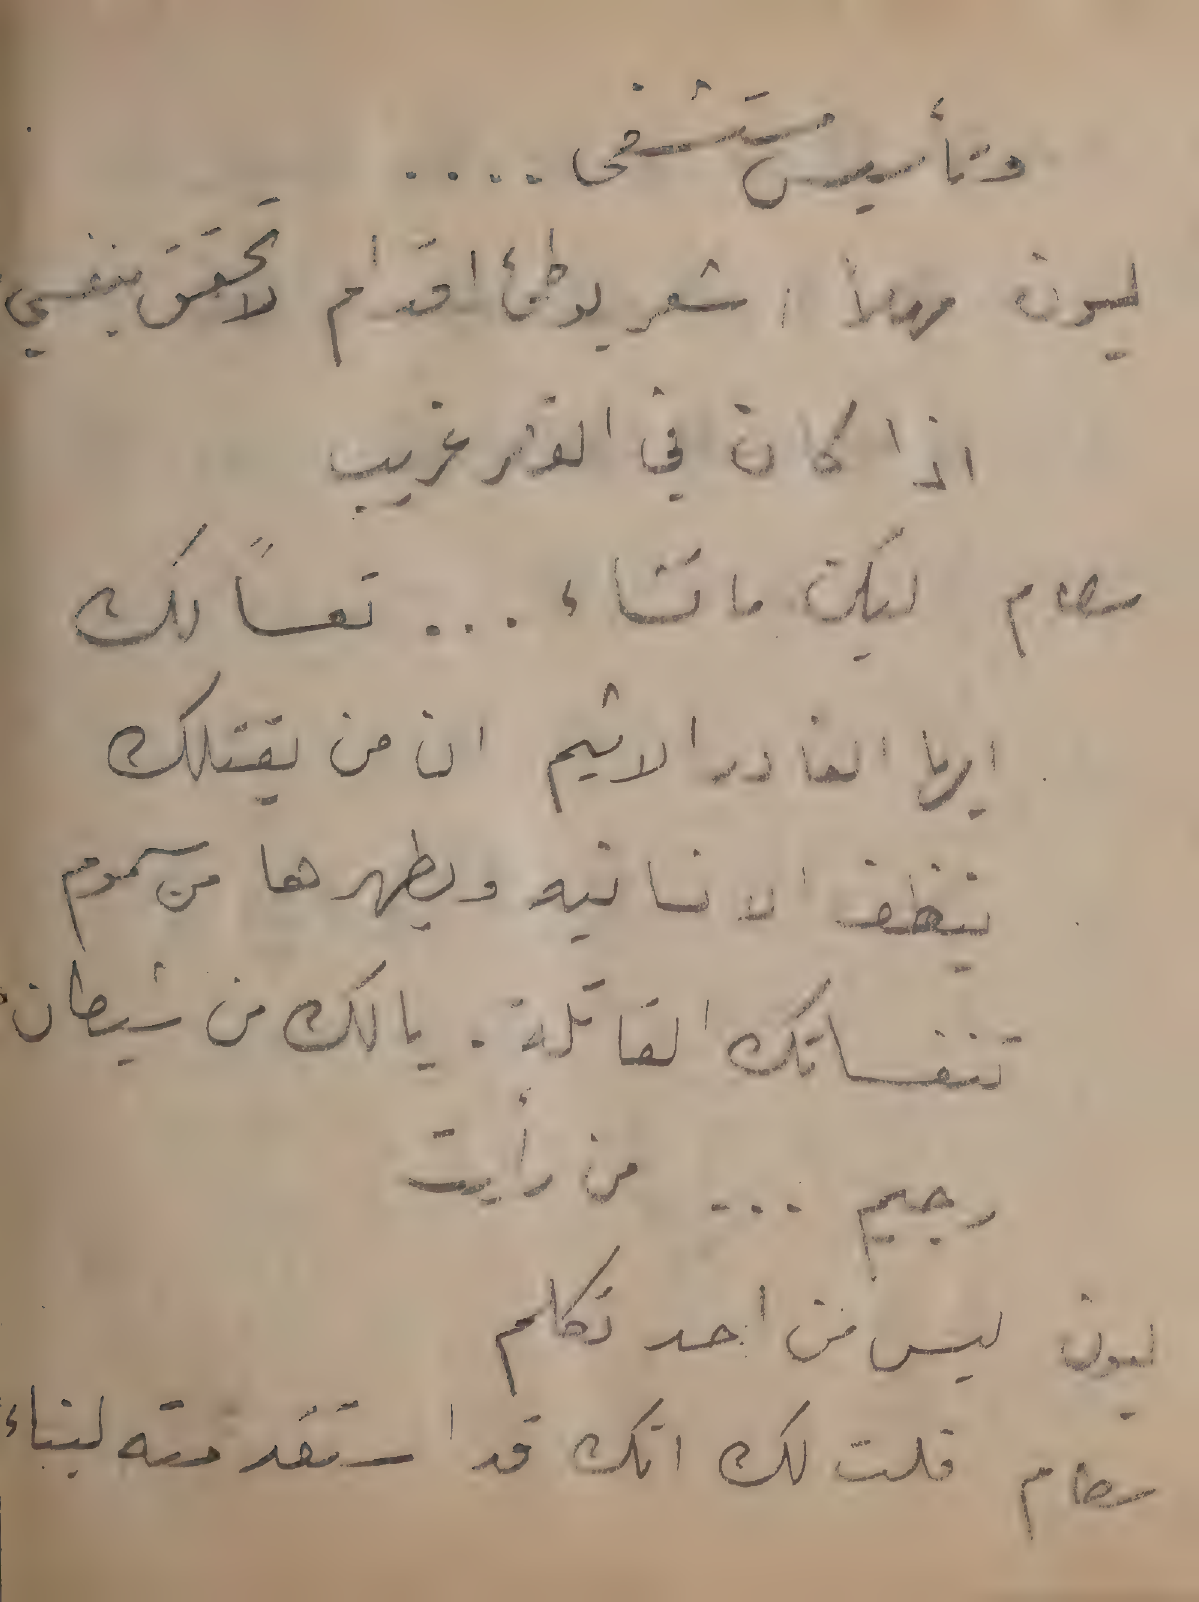 وتأسيس مستشفى ....
ليون مهلاً اشعر بوطئ اقدام لاتحقق بنفسي
اذا كان في القفر غريب
سطام ليكن ما تشاء ... تعساً لك
ايها الغادر الاثيم ان من يقتلك
ينظف الانسانيه ويطهرها من سموم
تنفساتك القاتلة . يالك من شيطان
رجيم ... من رأيت
ليون ليس من احد تكلم
سطام قلت لك انك قد استقدمته لبناء